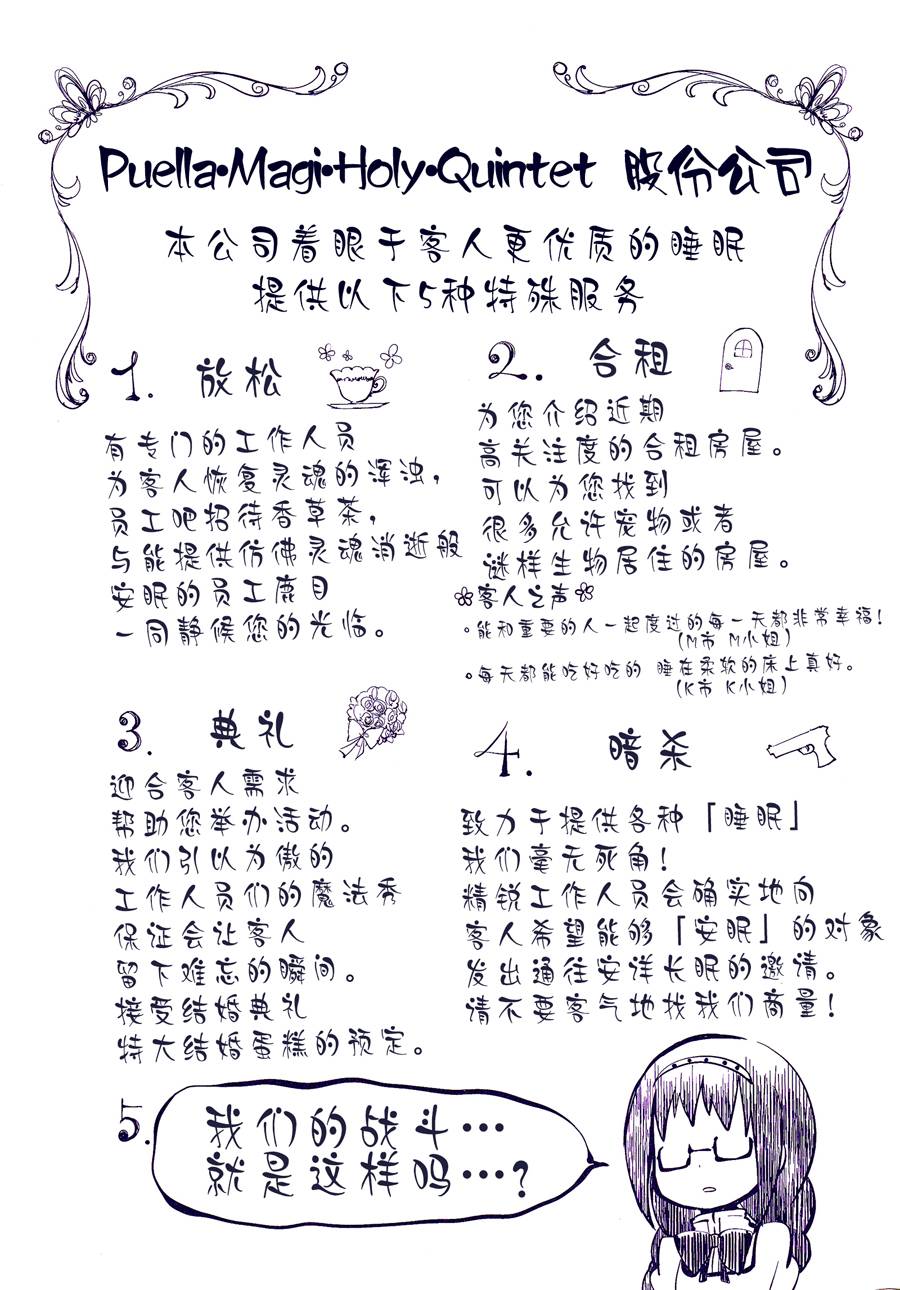 Puella•Magi•Holy•Quintet 股份公司
本公司着眼于客人更优质的睡眠
提供以下5种特殊服务
1. 放松
有专门的工作人员
为客人恢复灵魂的浑浊，
员工吧招待香草茶，
与能提供仿佛灵魂消逝般
安眠的员工鹿目
一同静候您的光临。
2. 合租
为您介绍近期
高关注度的合租房屋。
可以为您找到
很多允许宠物或者
谜样生物居住的房屋。
客人之声
。能和重要的人一起度过的每一天都非常幸福！
(M市 M小姐)
。每天都能吃好吃的 睡在柔软的床上真好。
(K市 K小姐)
3. 典礼
迎合客人需求
帮助您举办活动。
我们引以为傲的
工作人员们的魔法秀
保证会让客人
留下难忘的瞬间。
接受结婚典礼
特大结婚蛋糕的预定。
4. 暗杀
致力于提供各种「睡眠」
我们毫无死角！
精锐工作人员会确实地向
客人希望能够「安眠」的对象
发出通往安详长眠的邀请。
请不要客气地找我们商量！
5.
我们的战斗…
就是这样吗…？